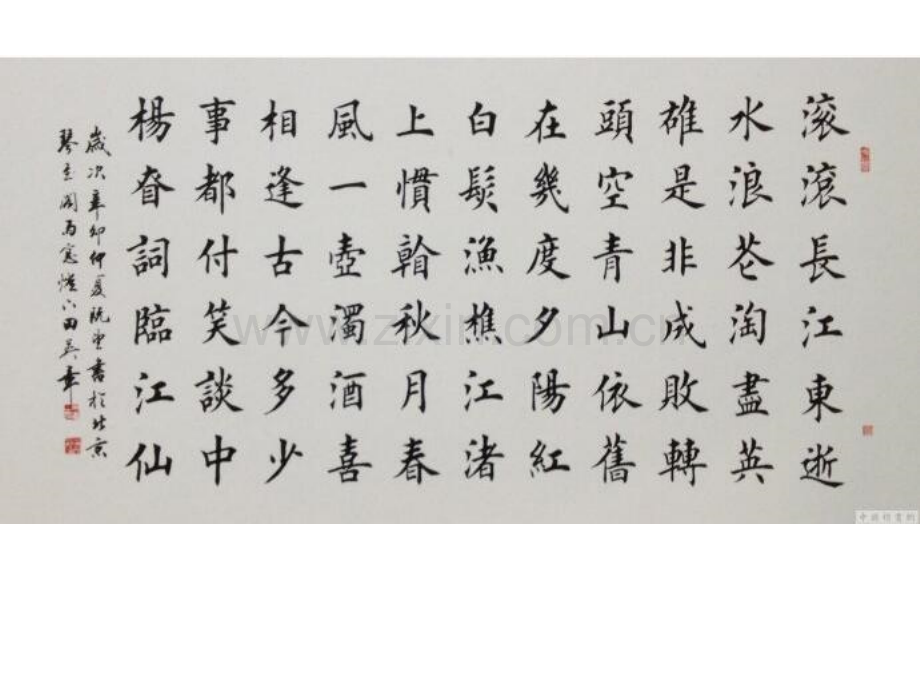 滚滾長江東逝
水浪花淘盡英
雄是非成敗轉
頭空青山依舊
在幾度夕陽紅
白髮漁樵江渚
上慣看秋月春
風一壺濁酒喜
相逢古今多少
事都付笑談中
楊眘詞臨江仙
歲次辛卯仲夏阮堂書於北京
琴玉閣南窓燈下田英章
www.zixin.com.cn